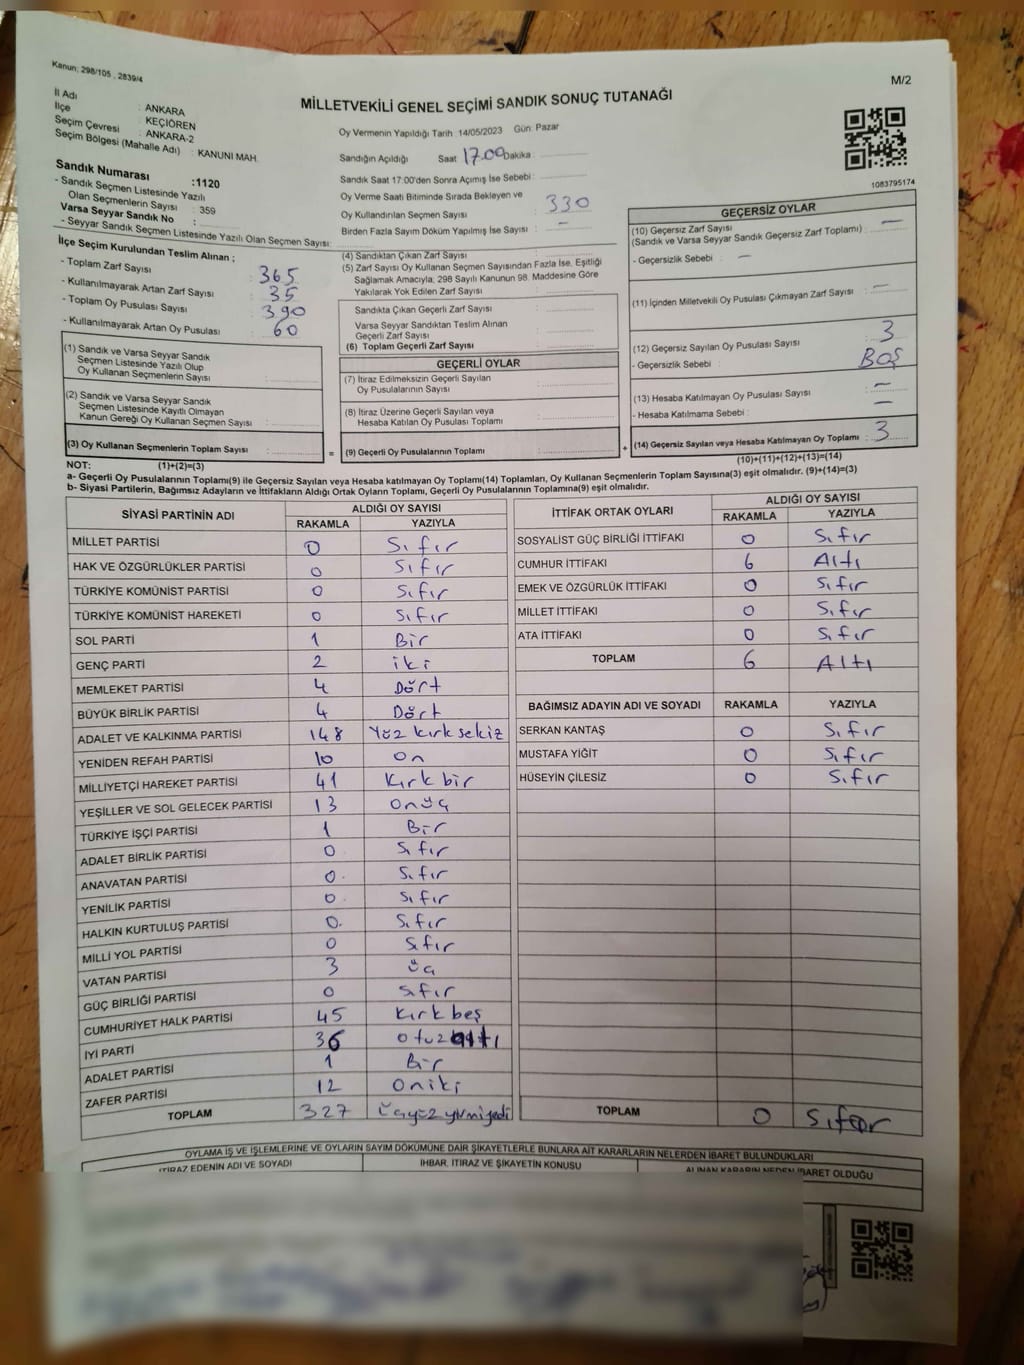 Kanun; 298/105 , 2839/4
M/2
MİLLETVEKİLİ GENEL SEÇİMİ SANDIK SONUÇ TUTANAĞI
İl Adı : ANKARA
İlçe : KEÇİÖREN
Seçim Çevresi : ANKARA-2
Seçim Bölgesi (Mahalle Adı) : KANUNİ MAH.
Sandık Numarası :1120
- Sandık Seçmen Listesinde Yazılı
Olan Seçmenlerin Sayısı : 359
Varsa Seyyar Sandık No :
- Seyyar Sandık Seçmen Listesinde Yazılı Olan Seçmen Sayısı:
Oy Vermenin Yapıldığı Tarih :14/05/2023 Gün: Pazar
Sandığın Açıldığı Saat 17.00 Dakika :
Sandık Saat 17:00'den Sonra Açılmış İse Sebebi :
Oy Verme Saati Bitiminde Sırada Bekleyen ve
Oy Kullandırılan Seçmen Sayısı : 330
Birden Fazla Sayım Döküm Yapılmış İse Sayısı : -
1083795174
İlçe Seçim Kurulundan Teslim Alınan ;
- Toplam Zarf Sayısı : 365
- Kullanılmayarak Artan Zarf Sayısı : 35
- Toplam Oy Pusulası Sayısı : 390
- Kullanılmayarak Artan Oy Pusulası : 60
(1) Sandık ve Varsa Seyyar Sandık
Seçmen Listesinde Yazılı Olup
Oy Kullanan Seçmenlerin Sayısı :
(2) Sandık ve Varsa Seyyar Sandık
Seçmen Listesinde Kayıtlı Olmayan
Kanun Gereği Oy Kullanan Seçmen Sayısı :
(3) Oy Kullanan Seçmenlerin Toplam Sayısı :
(4) Sandıktan Çıkan Zarf Sayısı :
(5) Zarf Sayısı Oy Kullanan Seçmen Sayısından Fazla İse, Eşitliği
Sağlamak Amacıyla; 298 Sayılı Kanunun 98. Maddesine Göre
Yakılarak Yok Edilen Zarf Sayısı :
Sandıkta Çıkan Geçerli Zarf Sayısı :
Varsa Seyyar Sandıktan Teslim Alınan
Geçerli Zarf Sayısı :
(6) Toplam Geçerli Zarf Sayısı :
GEÇERLİ OYLAR
(7) İtiraz Edilmeksizin Geçerli Sayılan
Oy Pusulalarının Sayısı :
(8) İtiraz Üzerine Geçerli Sayılan veya
Hesaba Katılan Oy Pusulası Toplamı :
= (9) Geçerli Oy Pusulalarının Toplamı : +
GEÇERSİZ OYLAR
(10) Geçersiz Zarf Sayısı
(Sandık ve Varsa Seyyar Sandık Geçersiz Zarf Toplamı) : -
- Geçersizlik Sebebi : -
(11) İçinden Milletvekili Oy Pusulası Çıkmayan Zarf Sayısı : -
(12) Geçersiz Sayılan Oy Pusulası Sayısı : 3
- Geçersizlik Sebebi : BOŞ
(13) Hesaba Katılmayan Oy Pusulası Sayısı : -
- Hesaba Katılmama Sebebi : -
(14) Geçersiz Sayılan veya Hesaba Katılmayan Oy Toplamı : 3
NOT: (1)+(2)=(3)
(10)+(11)+(12)+(13)=(14)
a- Geçerli Oy Pusulalarının Toplamı(9) ile Geçersiz Sayılan veya Hesaba katılmayan Oy Toplamı(14) Toplamları, Oy Kullanan Seçmenlerin Toplam Sayısına(3) eşit olmalıdır. (9)+(14)=(3)
b- Siyasi Partilerin, Bağımsız Adayların ve İttifakların Aldığı Ortak Oyların Toplamı, Geçerli Oy Pusulalarının Toplamına(9) eşit olmalıdır.
SİYASİ PARTİNİN ADI ALDIĞI OY SAYISI
RAKAMLA YAZIYLA
MİLLET PARTİSİ 0 Sıfır
HAK VE ÖZGÜRLÜKLER PARTİSİ 0 Sıfır
TÜRKİYE KOMÜNİST PARTİSİ 0 Sıfır
TÜRKİYE KOMÜNİST HAREKETİ 0 Sıfır
SOL PARTİ 1 Bir
GENÇ PARTİ 2 iki
MEMLEKET PARTİSİ 4 Dört
BÜYÜK BİRLİK PARTİSİ 4 Dört
ADALET VE KALKINMA PARTİSİ 148 Yüz kırk sekiz
YENİDEN REFAH PARTİSİ 10 on
MİLLİYETÇİ HAREKET PARTİSİ 41 Kırk bir
YEŞİLLER VE SOL GELECEK PARTİSİ 13 onüç
TÜRKİYE İŞÇİ PARTİSİ 1 Bir
ADALET BİRLİK PARTİSİ 0 Sıfır
ANAVATAN PARTİSİ 0 Sıfır
YENİLİK PARTİSİ 0 Sıfır
HALKIN KURTULUŞ PARTİSİ 0 Sıfır
MİLLİ YOL PARTİSİ 0 Sıfır
VATAN PARTİSİ 3 üç
GÜÇ BİRLİĞİ PARTİSİ 0 sıfır
CUMHURİYET HALK PARTİSİ 45 Kırk beş
İYİ PARTİ 36 otuz altı
ADALET PARTİSİ 1 Bir
ZAFER PARTİSİ 12 Oniki
TOPLAM 327 Üçyüz yirmiyedi
İTTİFAK ORTAK OYLARI ALDIĞI OY SAYISI
RAKAMLA YAZIYLA
SOSYALİST GÜÇ BİRLİĞİ İTTİFAKI 0 Sıfır
CUMHUR İTTİFAKI 6 Altı
EMEK VE ÖZGÜRLÜK İTTİFAKI 0 Sıfır
MİLLET İTTİFAKI 0 Sıfır
ATA İTTİFAKI 0 Sıfır
TOPLAM 6 Altı
BAĞIMSIZ ADAYIN ADI VE SOYADI RAKAMLA YAZIYLA
SERKAN KANTAŞ 0 Sıfır
MUSTAFA YİĞİT 0 Sıfır
HÜSEYİN ÇİLESİZ 0 Sıfır
TOPLAM 0 Sıfır
OYLAMA İŞ VE İŞLEMLERİNE VE OYLARIN SAYIM DÖKÜMÜNE DAİR ŞİKAYETLERLE BUNLARA AİT KARARLARIN NELERDEN İBARET BULUNDUKLARI
İTİRAZ EDENİN ADI VE SOYADI İHBAR, İTİRAZ VE ŞİKAYETİN KONUSU ALINAN KARARIN NEDEN İBARET OLDUĞU